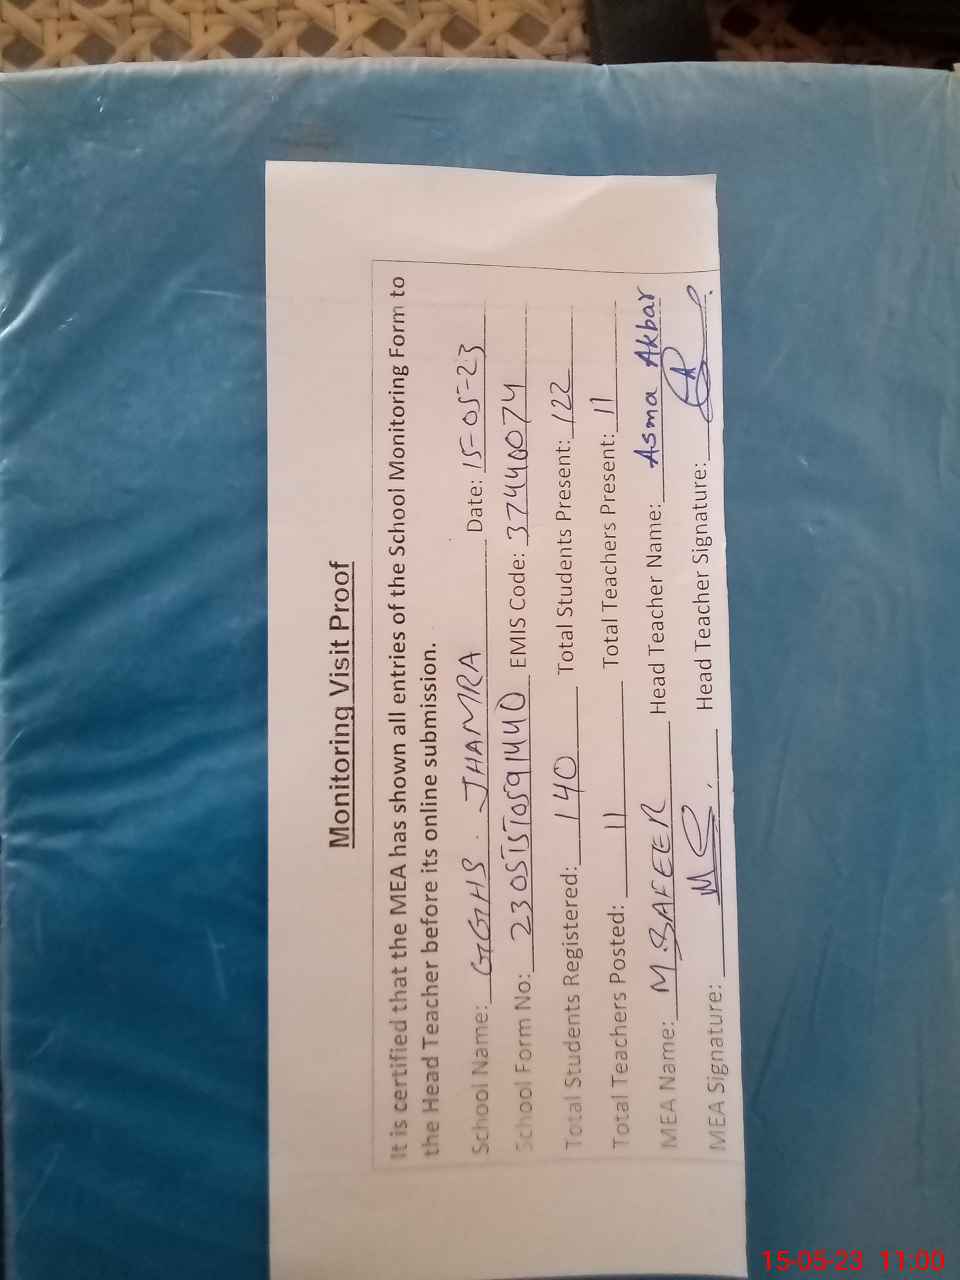 Monitoring Visit Proof
It is certified that the MEA has shown all entries of the School Monitoring Form to
the Head Teacher before its online submission.
School Name: GGHS. JHAMRA Date: 15-05-23
School Form No: EMIS Code: 37440074
Total Students Registered: 140 Total Students Present: 122
Total Teachers Posted: 11 Total Teachers Present: 11
MEA Name: M. SAFEER Head Teacher Name: Asma Akbar
MEA Signature: Head Teacher Signature:
15-05-23 11:00